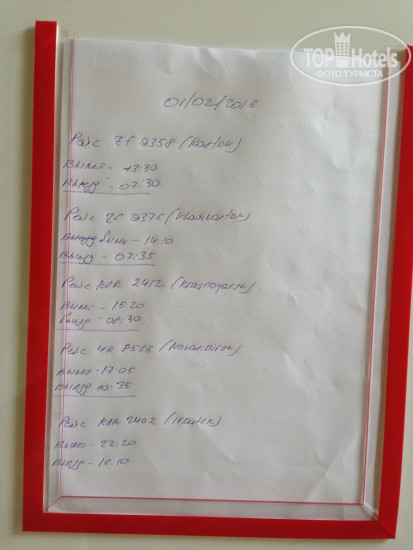 TOPHotels
ФОТО ТУРИСТА
01/02/2015
Рейс ZF 9358 (Rostov)
Вылет - 13:30
Выезд - 07:30
Рейс ZF 9376 (Vladivostok)
Вылет - 14:10
Выезд - 07:35
Рейс KAR 2412 (Krasnoyarsk)
Вылет - 15:20
Выезд - 08:30
Рейс 4R 8556 (Novosibirsk)
Вылет - 17:05
Выезд 10:35
Рейс KAR 2402 (Irkutsk)
Вылет - 22:20
Выезд - 16:10